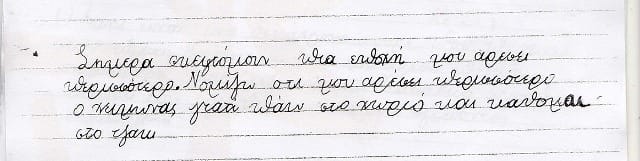 Σημερα σκεφτόμουν πια εποχή μου αρεσει
περισσοτερο. Νομιζω οτι μου αρεσει περισσοτερο
ο χειμωνας γιατι παω στο χωριό και καθομαι
στο τζακι